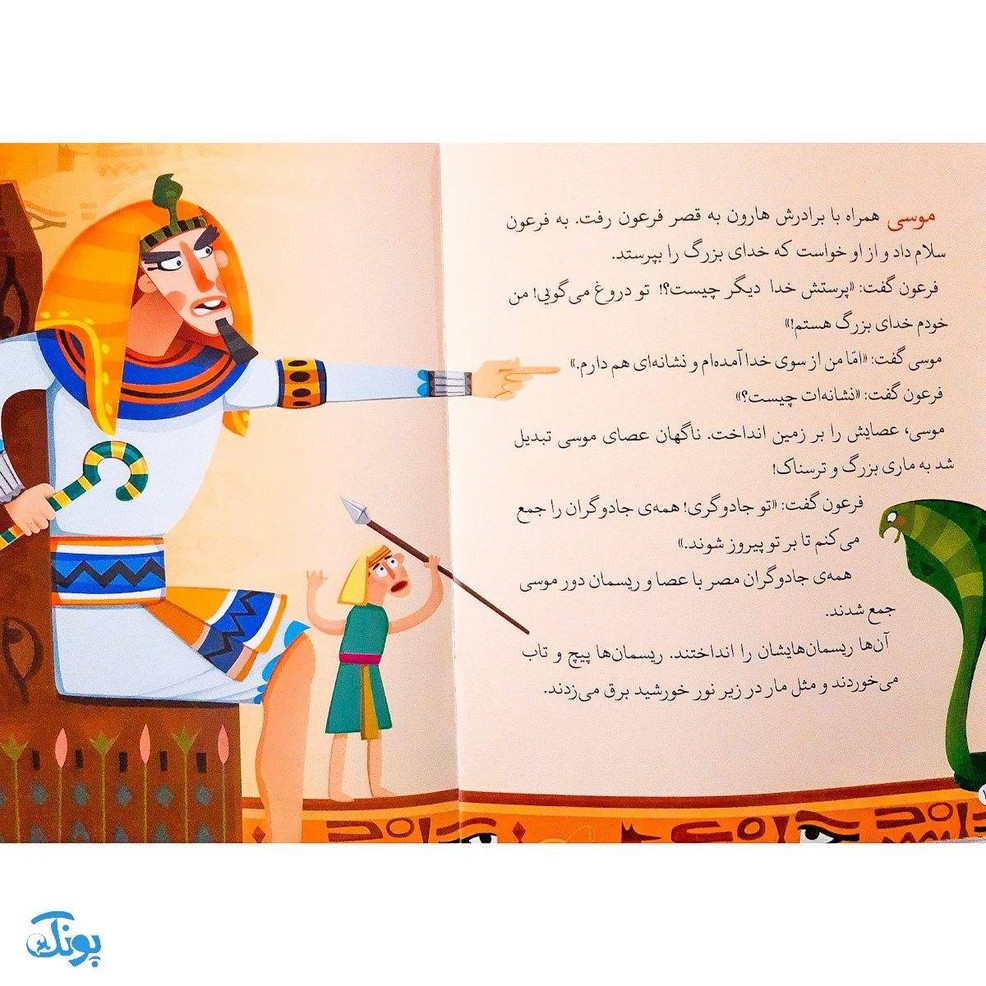 موسی همراه با برادرش هارون به قصر فرعون رفت. به فرعون
سلام داد و از او خواست که خدای بزرگ را بپرستد.
فرعون گفت: «پرستش خدا دیگر چیست؟! تو دروغ می‌گویی! من
خودم خدای بزرگ هستم!»
موسی گفت: «امّا من از سوی خدا آمده‌ام و نشانه‌ای هم دارم.»
فرعون گفت: «نشانه‌ات چیست؟»
موسی، عصایش را بر زمین انداخت. ناگهان عصای موسی تبدیل
شد به ماری بزرگ و ترسناک!
فرعون گفت: «تو جادوگری! همه‌ی جادوگران را جمع
می‌کنم تا بر تو پیروز شوند.»
همه‌ی جادوگران مصر با عصا و ریسمان دور موسی
جمع شدند.
آن‌ها ریسمان‌هایشان را انداختند. ریسمان‌ها پیچ و تاب
می‌خوردند و مثل مار در زیر نور خورشید برق می‌زدند.
پونک